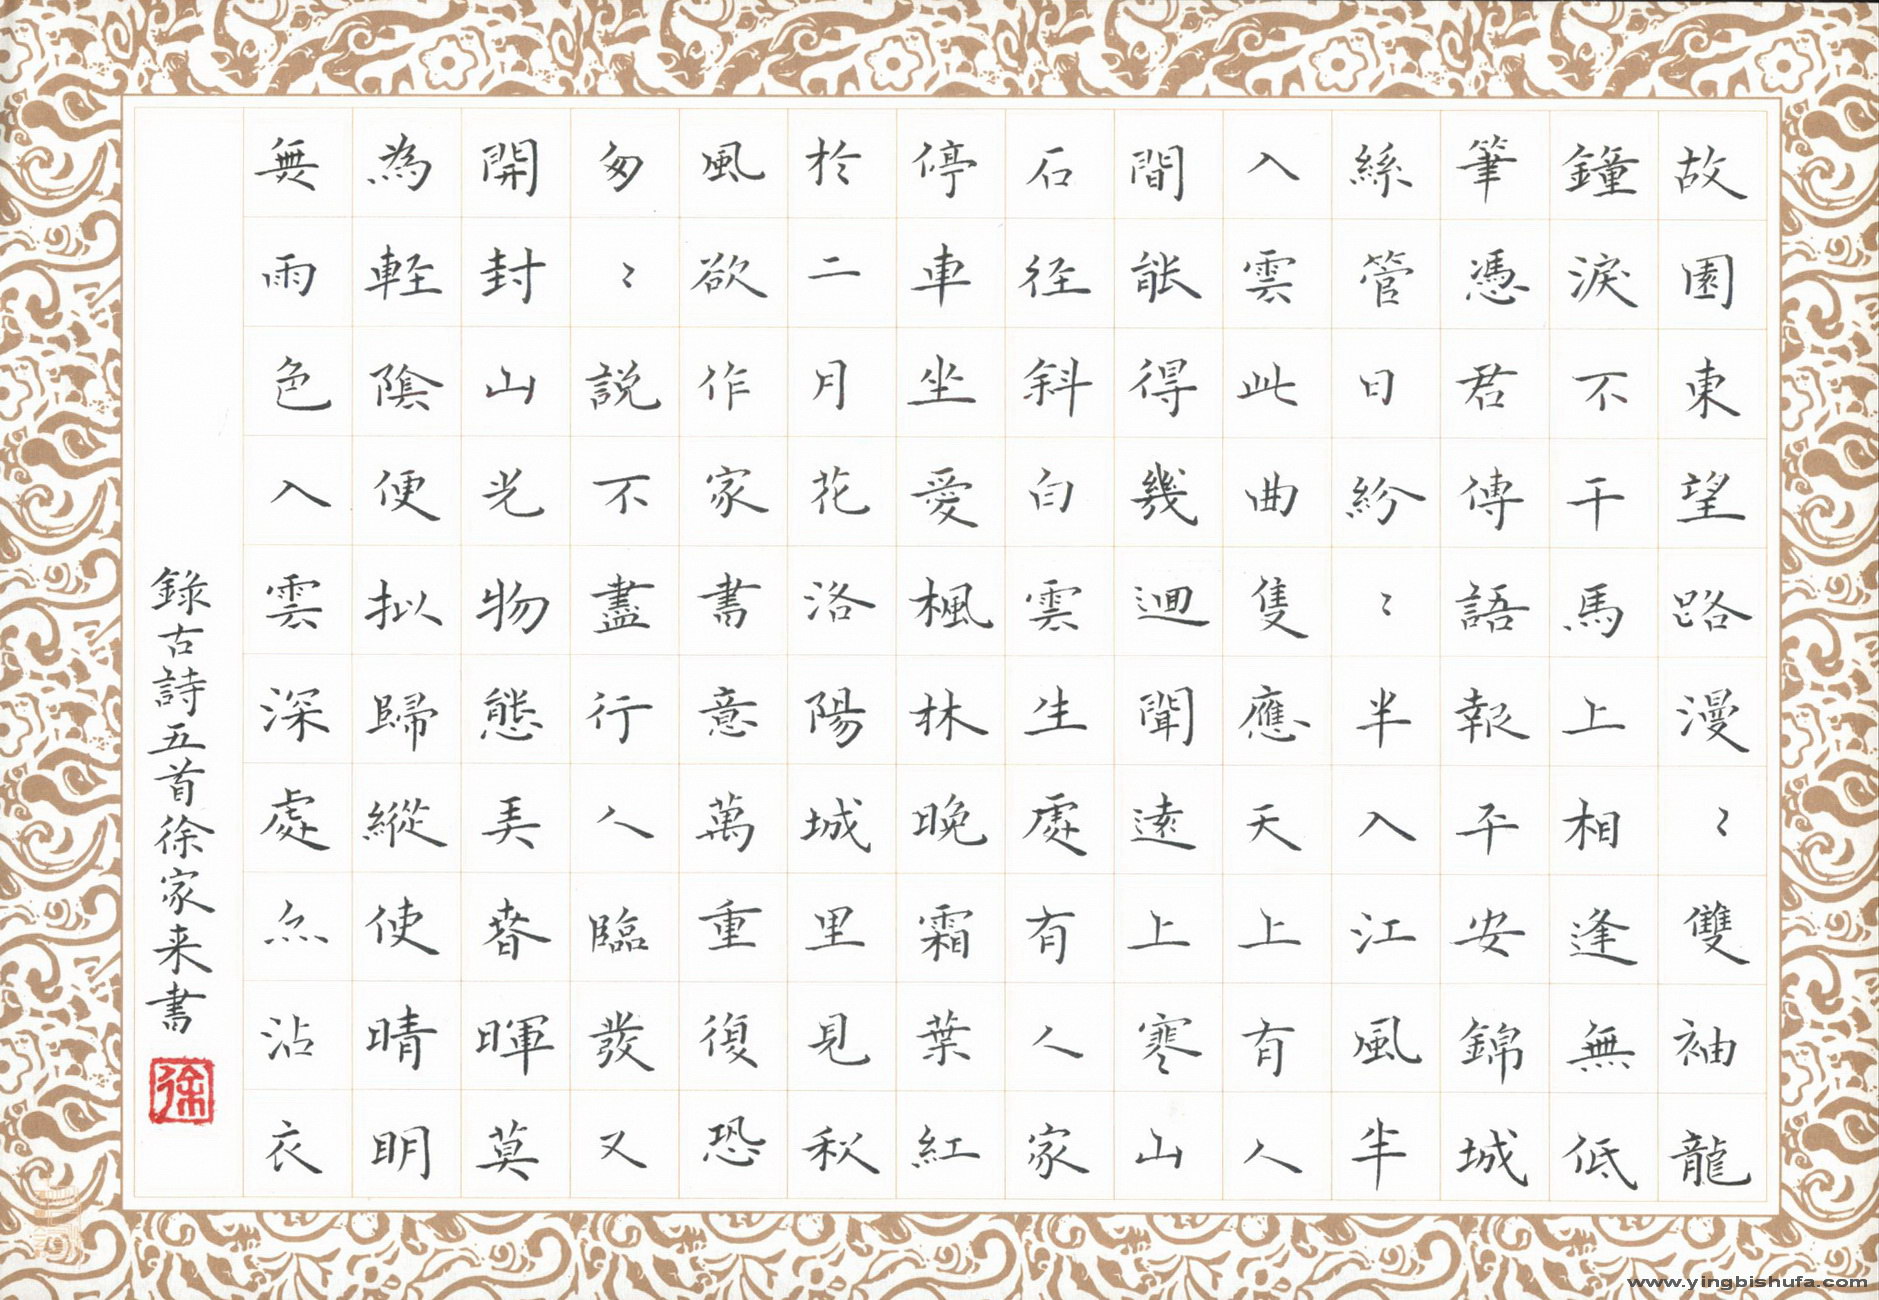 故園東望路漫〻雙袖龍
鐘淚不干馬上相逢無低
筆憑君傳語報平安錦城
絲管日紛〻半入江風半
入雲此曲隻應天上有人
間能得幾迴聞遠上寒山
石径斜白雲生處有人家
停車坐愛楓林晚霜葉紅
於二月花洛陽城里見秋
風欲作家書意萬重復恐
匆〻説不盡行人臨發又
開封山光物態弄春暉莫
為軽陰便拟歸縱使晴明
無雨色入雲深處亦沾衣
錄古詩五首徐家来書
徐
www.yingbishufa.com